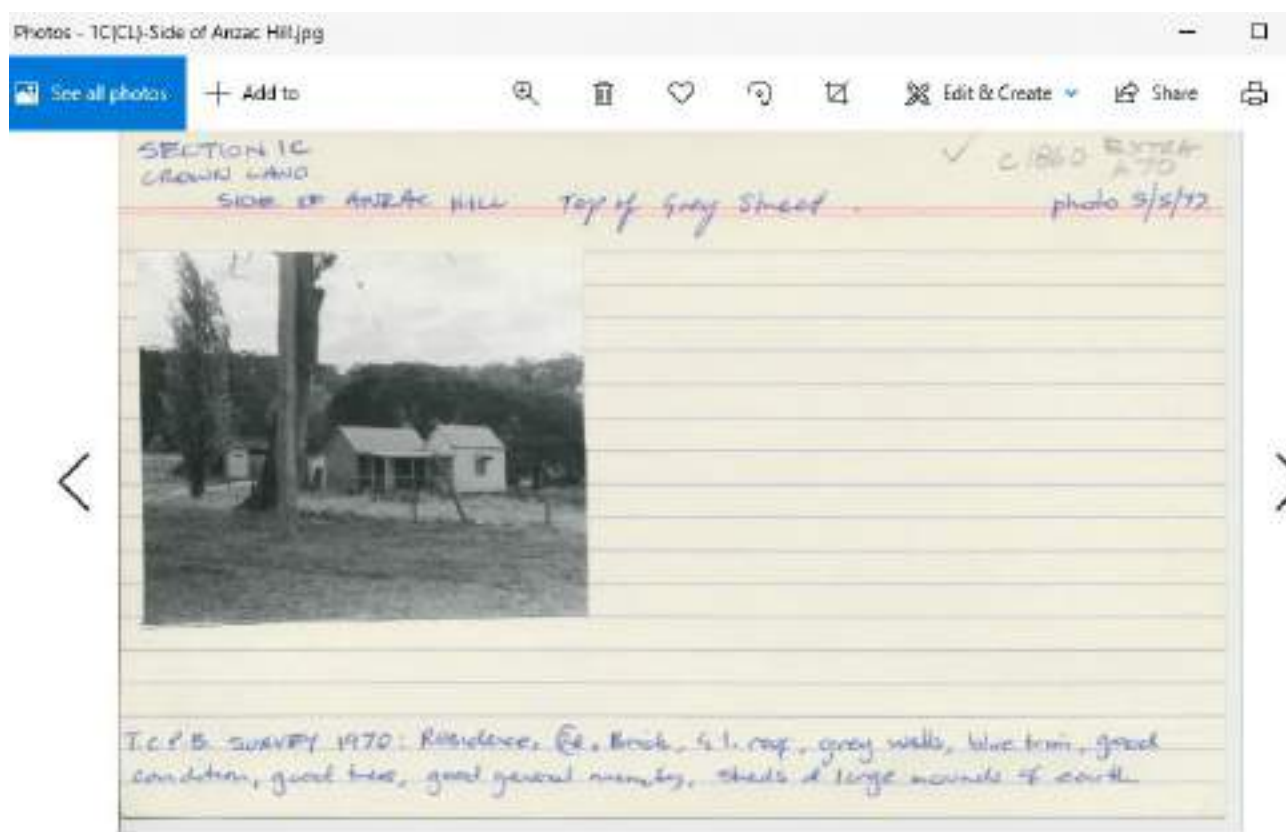 Photos - 1C(CL)-Side of Anzac Hill.jpg
See all photos + Add to Edit & Create Share
SECTION 1C
c1860 EXTRA A70
CROWN LAND
SIDE OF ANZAC HILL Top of Grey Street. photo 5/5/72
T.C.P.B. SURVEY 1970: Residence, Brick, G.I. roof, grey walls, blue trim, good
condition, good trees, good general, sheds & large mounds of earth